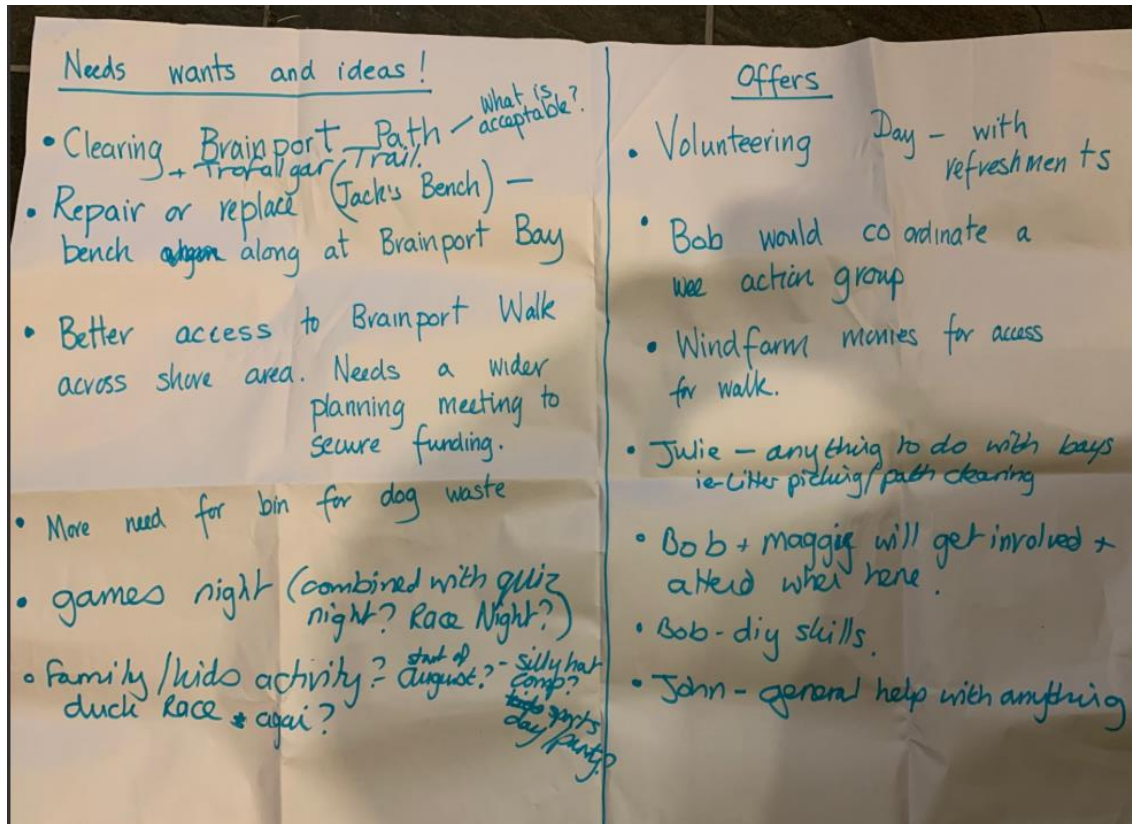 Needs wants and ideas!
• Clearing Brainport Path — What is
acceptable?
+ Trafalgar Trail.
• Repair or replace (Jack's Bench) —
bench along at Brainport Bay
• Better access to Brainport Walk
across shore area. Needs a wider
planning meeting to
secure funding.
• More need for bin for dog waste
• games night (combined with quiz
night? Race Night?)
• Family/kids activity? start of
august? - silly hat
comp?
duck Race again?
kids sports
day/party?
Offers
• Volunteering Day - with
refreshments
• Bob would co ordinate a
wee action group
• Windfarm monies for access
for walk.
• Julie - anything to do with bays
ie-Litter picking/path clearing
• Bob + maggie will get involved +
attend when here.
• Bob - diy skills.
• John - general help with anything